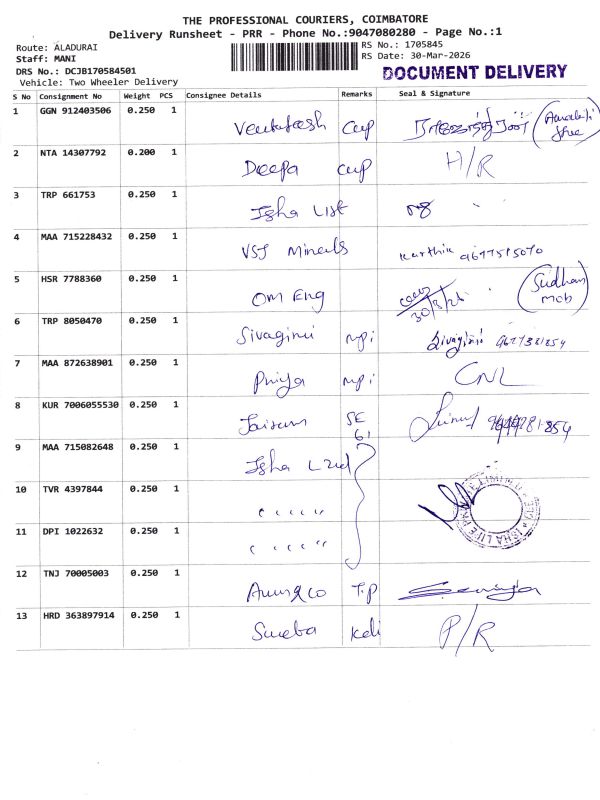 THE PROFESSIONAL COURIERS, COIMBATORE
Delivery Runsheet - PRR - Phone No.:9047080280 - Page No.:1
Route: ALADURAI
Staff: MANI
DRS No.: DCJB170584501
Vehicle: Two Wheeler Delivery
RS No.: 1705845
RS Date: 30-Mar-2026
DOCUMENT DELIVERY
S No Consignment No Weight PCS Consignee Details Remarks Seal & Signature
1 GGN 912403506 0.250 1 Venkatesh cup
2 NTA 14307792 0.200 1 Deepa cup H/R
3 TRP 661753 0.250 1 Isha List
4 MAA 715228432 0.250 1 VSJ Minerals Karthik 9677515070
5 HSR 7788360 0.250 1 OM Eng 30/3/26 Sudhan mob
6 TRP 8050470 0.250 1 Sivagini mpi Sivagini
7 MAA 872638901 0.250 1 Priya mpi CNL
8 KUR 7006055530 0.250 1 SE
9 MAA 715082648 0.250 1 Isha
10 TVR 4397844 0.250 1 " "
11 DPI 1022632 0.250 1 " "
ISHA LIFE PRIVATE LIMITED
12 TNJ 70005003 0.250 1 T.P
13 HRD 363897914 0.250 1 Sweba keli P/R